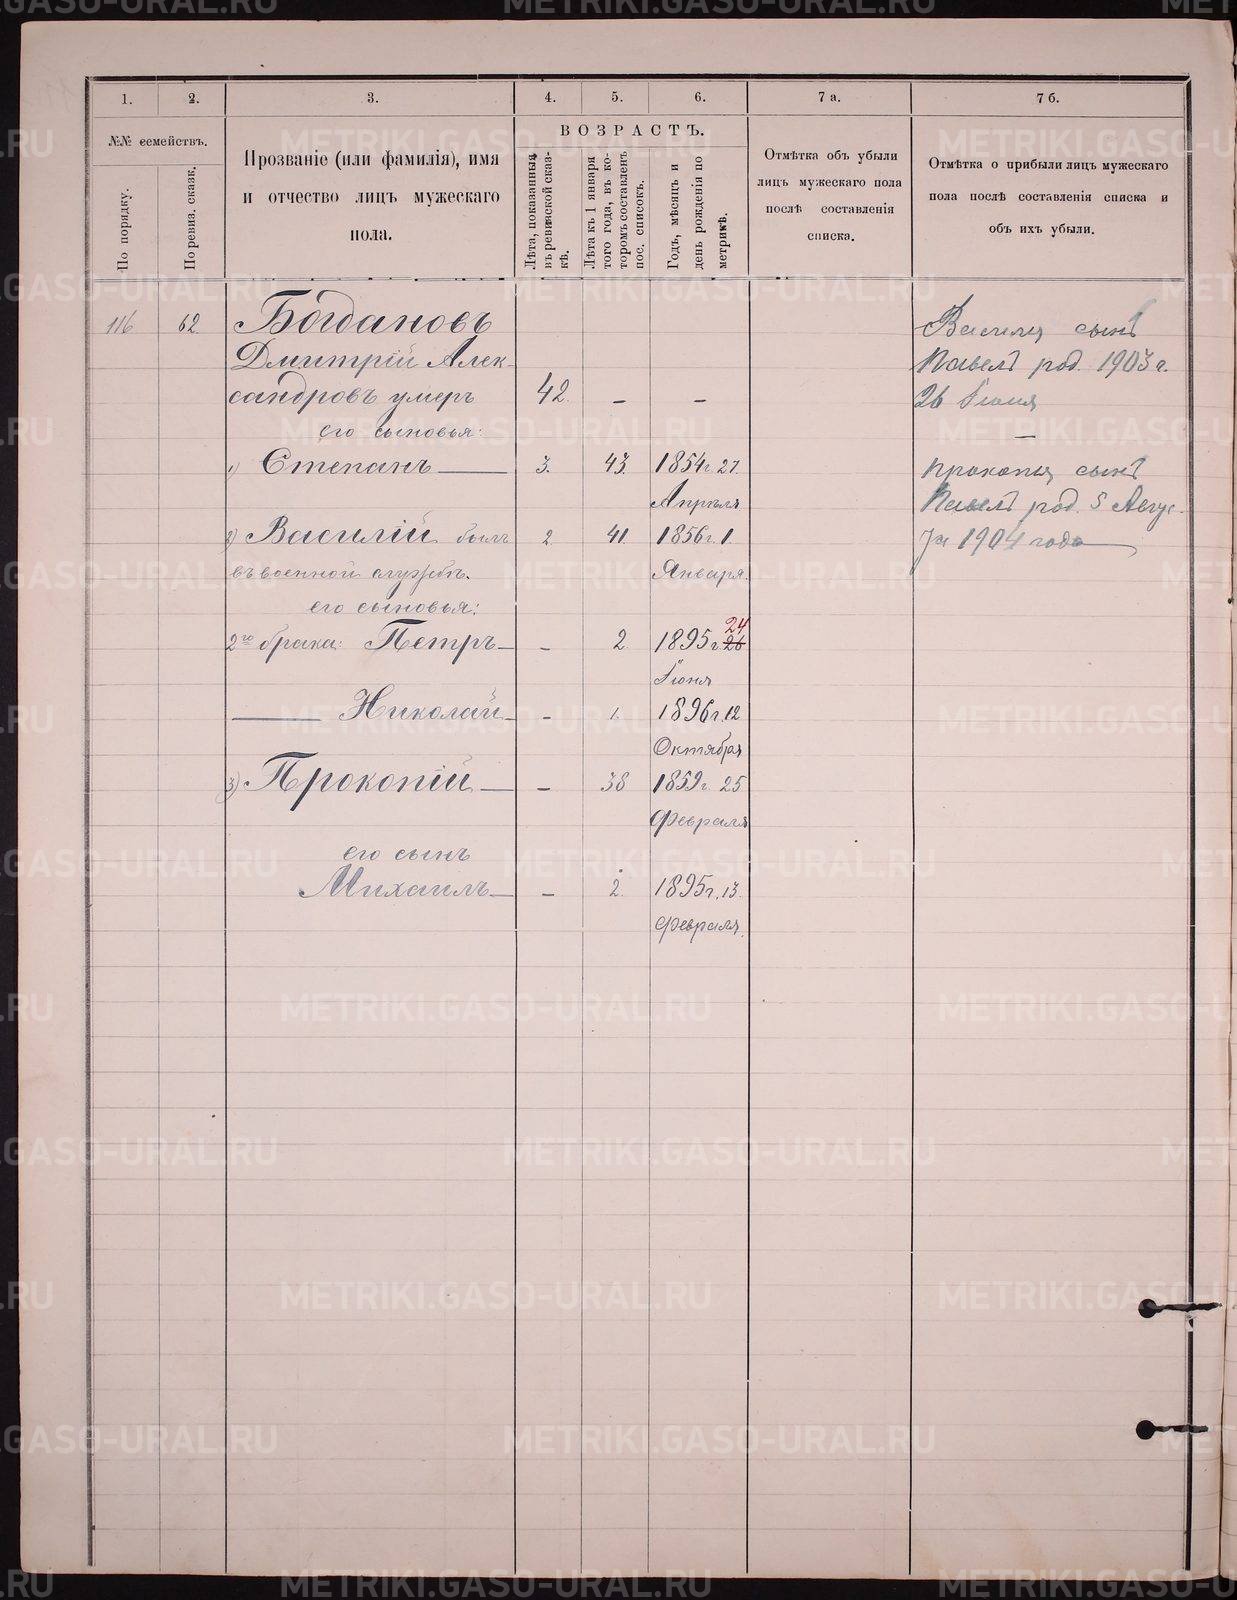 1. 2. 3. 4. 5. 6. 7 а. 7 б.
№№ семействъ.
По порядку.
По ревиз. сказк.
Прозваніе (или фамилія), имя
и отчество лицъ мужескаго
пола.
ВОЗРАСТЪ.
Лѣта, показанныя
въ ревизской сказ-
кѣ.
Лѣта къ 1 января
того года, въ ко-
торомъ составленъ
пос. списокъ.
Годъ, мѣсяцъ и
день рожденія по
метрикѣ.
Отмѣтка объ убыли
лицъ мужескаго пола
послѣ составленія
списка.
Отмѣтка о прибыли лицъ мужескаго
пола послѣ составленія списка и
объ ихъ убыли.
116 62 Богдановъ
Дмитрій Алек-
сандровъ умеръ 42. — —
его сыновья:
1) Степанъ — 3. 43 1854 г. 27.
Апрѣля
2) Василій былъ 2 41 1856 г. 1.
въ военной службѣ. Января.
его сыновья:
24
2го брака: Петръ — — 2 1895 г. 26
Іюня
— Николай — — 1. 1896 г. 12
Октября
3) Прокопій — — 38 1859 г. 25
Февраля
его сынъ
Михаилъ — — 2. 1895 г. 13.
Февраля.
Василія сынъ
Павелъ род. 1903 г.
26 Іюня
—
Прокопія сынъ
Павелъ род. 5 Авгус-
та 1904 года
METRIKI.GASO-URAL.RU